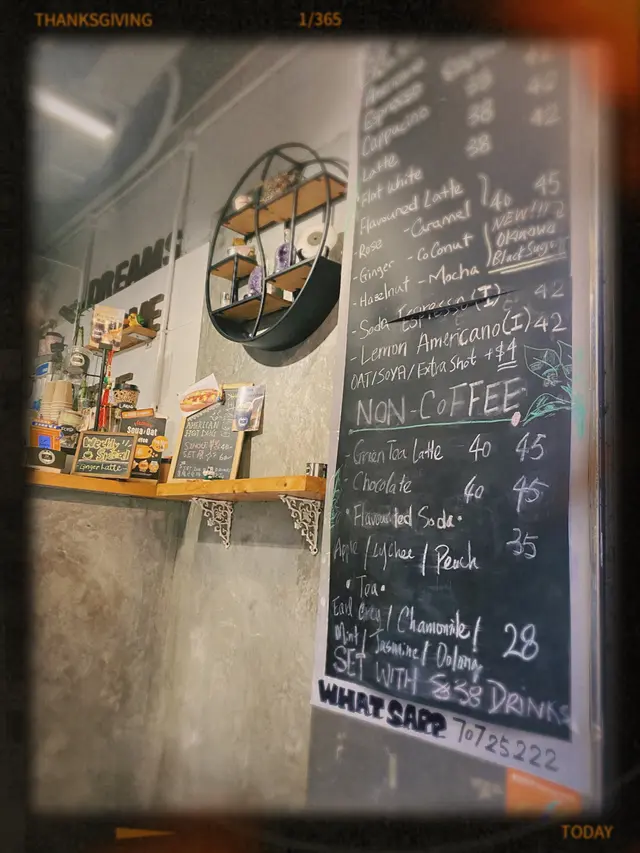 THANKSGIVING
1/365
DREAMS
Weekly
Special
Ginger Latte
Soya/Oat
AMERICAN
42
Americano 38 42
Espresso 38 42
Cappucino 38
Latte
Flat White
Flavoured Latte 40 45
- Rose - Caramel NEW!!!
- Ginger - CoConut Okinawa
- Hazelnut - Mocha Black Sugar
- Soda Espresso (I) 42
- Lemon Americano (I) 42
OAT/SOYA/Extra Shot +$4
NON-COFFEE
- Green Tea Latte 40 45
- Chocolate 40 45
• Flavoured Soda •
Apple / Lychee / Peach 35
• Tea •
Earl Grey / Chamomile /
Mint / Jasmine / Oolong 28
SET WITH $38 DRINKS
WHATSAPP 70725222
TODAY